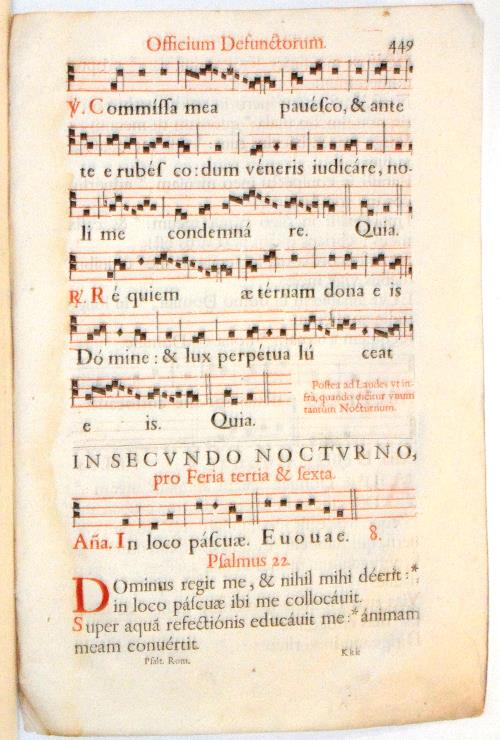 Officium Defunctorum. 449
℣. Commiſſa mea pauéſco, & ante
te e rubéſ co: dum véneris iudicáre, no-
li me condemná re. Quia.
℟. R é quiem æ térnam dona e is
Dó mine: & lux perpétua lú ceat
e is. Quia.
Poſtea ad Laudes vt in-
frà, quando dicitur vnum
tantùm Nocturnum.
IN SECVNDO NOCTVRNO,
pro Feria tertia & ſexta.
Aña. In loco páſcuæ. E u o u a e. 8.
Pſalmus 22.
DOminus regit me, & nihil mihi déerit:*
in loco páſcuæ ibi me collocáuit.
Super aquã refectiónis educáuit me:* ánimam
meam conuértit.
Pſalt. Rom. Kkk